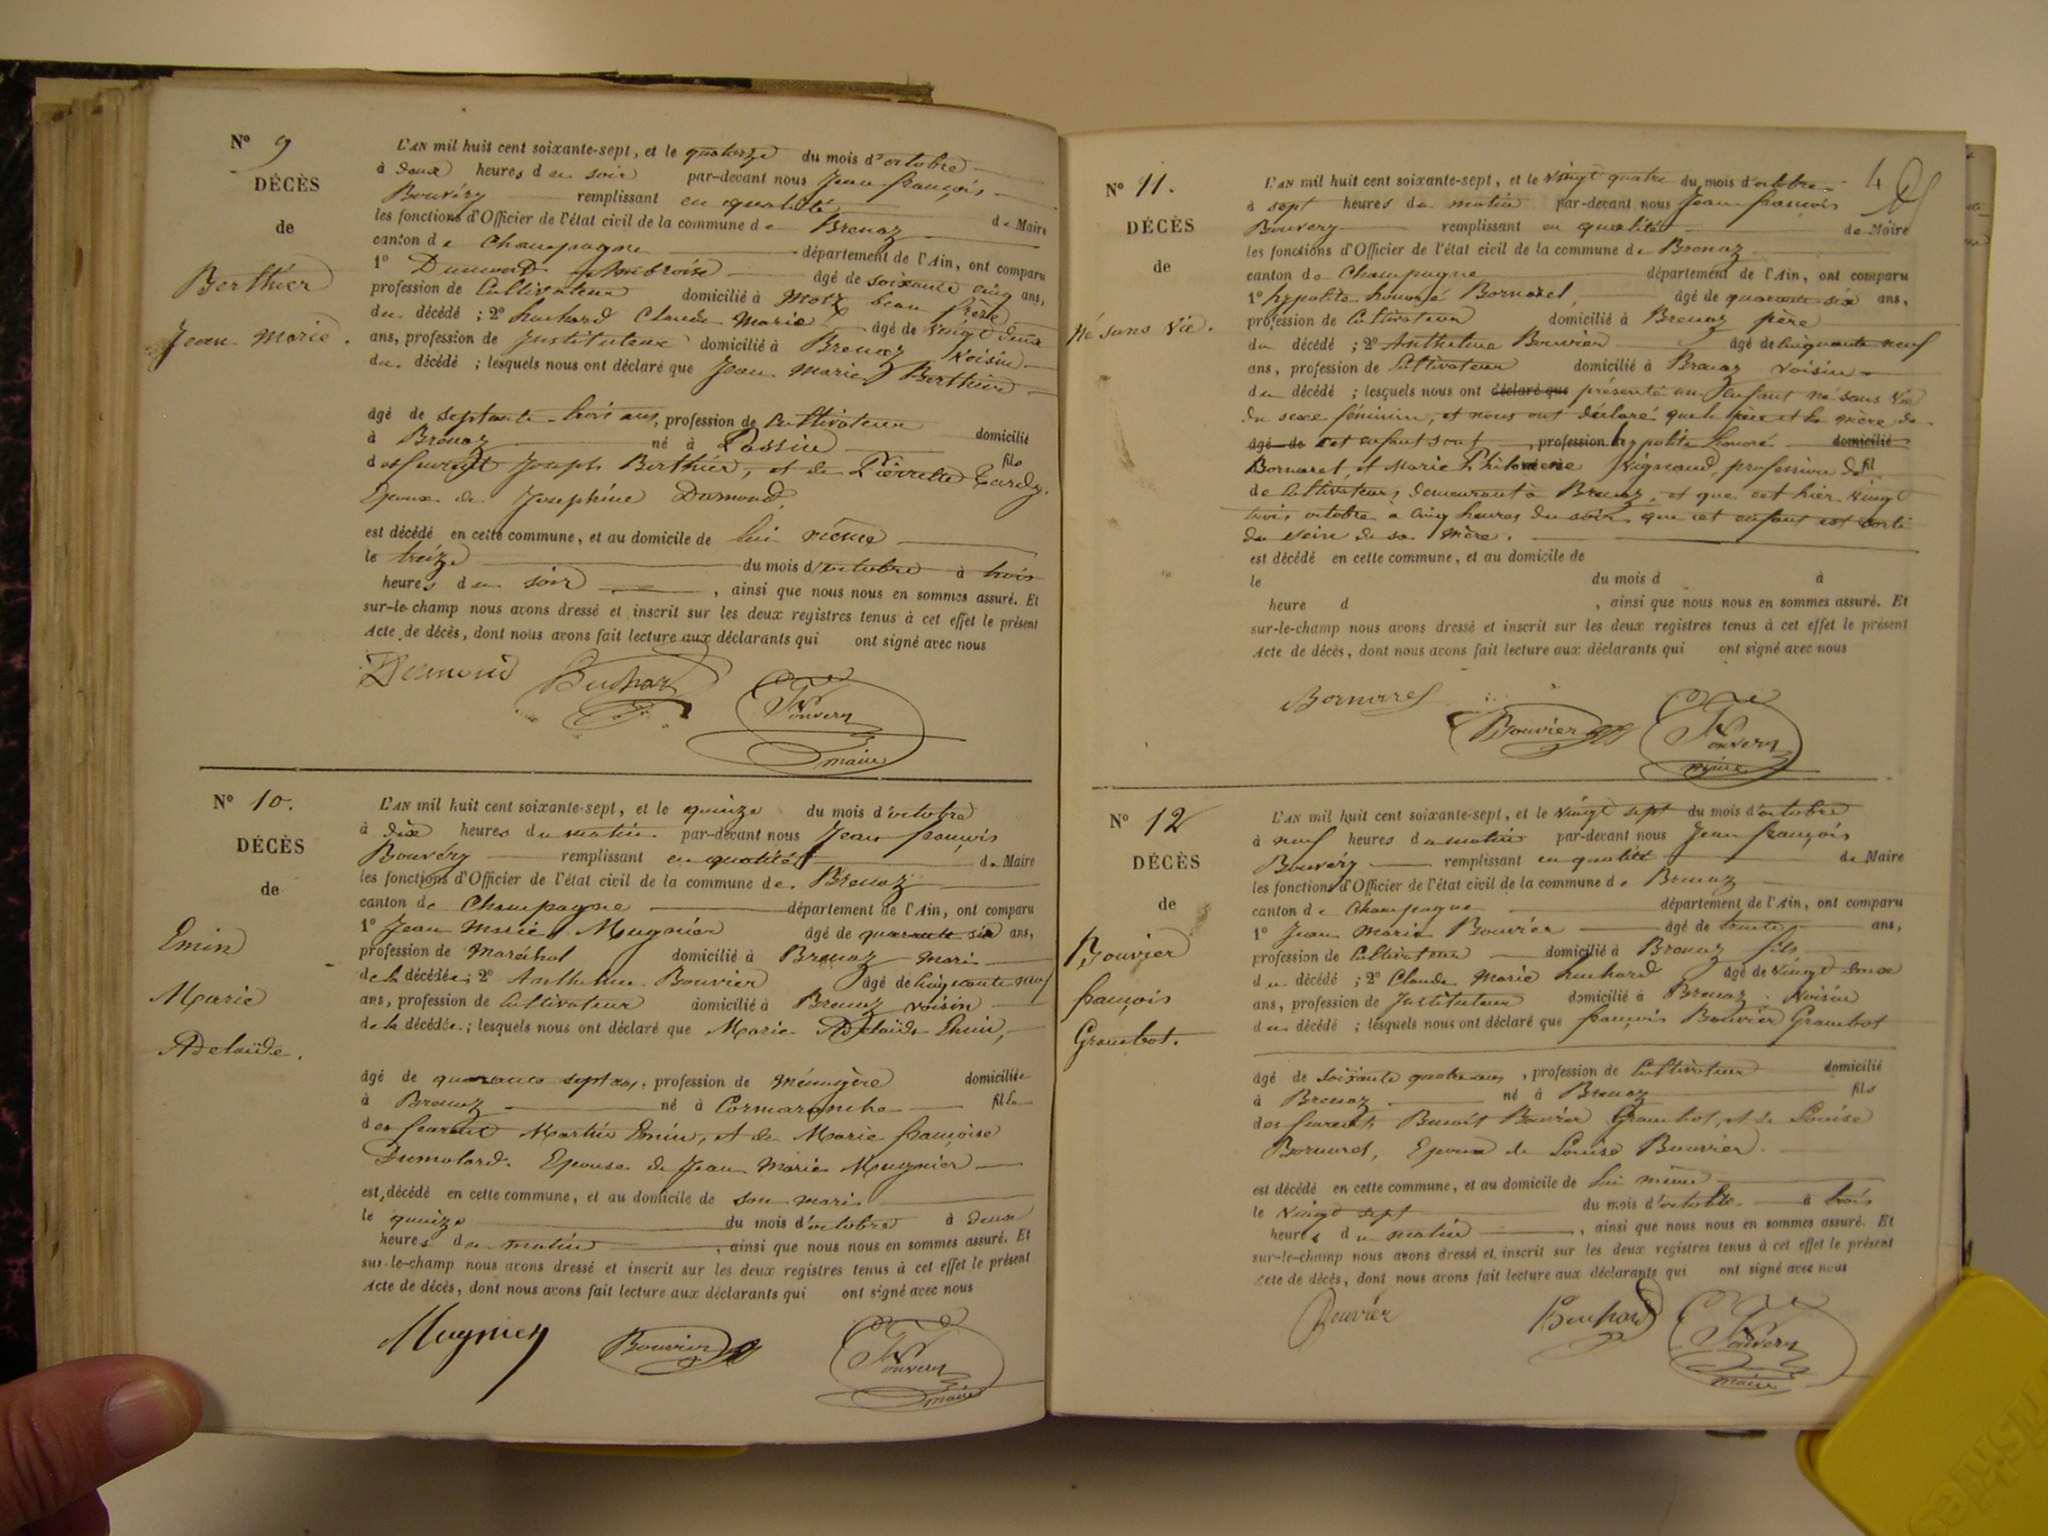 N° 9
DÉCÈS
de
Berthier
Jean Marie.
L'AN mil huit cent soixante-sept, et le quatorze du mois d'octobre
à deux heures du soir par-devant nous Jean françois
Bouvéry remplissant en qualité de Maire
les fonctions d'Officier de l'état civil de la commune de Brenaz
canton de Champagne département de l'Ain, ont comparu
1° Dumond Ambroise âgé de soixante cinq ans,
profession de Cultivateur domicilié à Motz beau frère
du décédé ; 2° Claude Marie âgé de vingt deux
ans, profession de Instituteur domicilié à Brenaz Voisin
du décédé ; lesquels nous ont déclaré que Jean Marie Berthier
âgé de septante trois ans, profession de Cultivateur domicilié
à Brenaz né à Passin fils
des Joseph Berthier, et de Pierrette Tardy.
Epoux de Joséphine Dumond
est décédé en cette commune, et au domicile de lui même
le treize du mois d'octobre à trois
heures du soir , ainsi que nous nous en sommes assuré. Et
sur-le-champ nous avons dressé et inscrit sur les deux registres tenus à cet effet le présent
Acte de décès, dont nous avons fait lecture aux déclarants qui ont signé avec nous
Dumond Bouvery
maire
N° 10.
DÉCÈS
de
Emin
Marie
Adelaïde.
L'AN mil huit cent soixante-sept, et le quinze du mois d'octobre
à dix heures du matin par-devant nous Jean françois
Bouvéry remplissant en qualité de Maire
les fonctions d'Officier de l'état civil de la commune de Brenaz
canton de Champagne département de l'Ain, ont comparu
1° Jean Marie Mugnier âgé de quarante six ans,
profession de Maréchal domicilié à Brenaz mari
de la décédée ; 2° Anthelme Bouvier âgé de cinquante neuf
ans, profession de Cultivateur domicilié à Brenaz voisin
de la décédée ; lesquels nous ont déclaré que Marie Adelaïde Emin,
âgé de quarante sept ans, profession de Ménagère domiciliée
à Brenaz né à Cormaranche fille
des Martin Emin, et de Marie françoise
Dumolard. Epouse de Jean Marie Mugnier
est décédé en cette commune, et au domicile de son mari
le quinze du mois d'octobre à deux
heures du matin , ainsi que nous nous en sommes assuré. Et
sur-le-champ nous avons dressé et inscrit sur les deux registres tenus à cet effet le présent
Acte de décès, dont nous avons fait lecture aux déclarants qui ont signé avec nous
Mugnier Bouvier Bouvery
maire
4
N° 11.
DÉCÈS
de
Né sans Vie.
L'AN mil huit cent soixante-sept, et le vingt quatre du mois d'octobre
à sept heures du matin par-devant nous Jean françois
Bouvery remplissant en qualité de Maire
les fonctions d'Officier de l'état civil de la commune de Brenaz
canton de Champagne département de l'Ain, ont comparu
1° hypolite honoré Bornarel, âgé de quarante six ans,
profession de Cultivateur domicilié à Brenaz père
du décédé ; 2° Anthelme Bouvier âgé de cinquante neuf
ans, profession de Cultivateur domicilié à Brenaz voisin
du décédé ; lesquels nous ont déclaré que présenté un Enfant né sans Vie
du sexe féminin, et nous ont déclaré que le père et la mère de
âgé de cet enfant sont , profession hypolite honoré domicilié
Bornarel, et Marie Philomène Vignand, profession de fil
de Cultivateurs, demeurant à Brenaz, et que cet hier vingt
trois octobre à cinq heures du soir que cet enfant est sorti
du sein de sa mère.
est décédé en cette commune, et au domicile de
le du mois d à
heure d , ainsi que nous nous en sommes assuré. Et
sur-le-champ nous avons dressé et inscrit sur les deux registres tenus à cet effet le présent
Acte de décès, dont nous avons fait lecture aux déclarants qui ont signé avec nous
Bornarel Bouvier Bouvery
maire
N° 12
DÉCÈS
de
Bouvier
françois
Grambot.
L'AN mil huit cent soixante-sept, et le vingt sept du mois d'octobre
à neuf heures du matin par-devant nous Jean françois
Bouvéry remplissant en qualité de Maire
les fonctions d'Officier de l'état civil de la commune de Brenaz
canton de Champagne département de l'Ain, ont comparu
1° Jean Marie Bouvier âgé de trente ans,
profession de Cultivateur domicilié à Brenaz fils
du décédé ; 2° Claude Marie âgé de vingt deux
ans, profession de Instituteur domicilié à Brenaz Voisin
du décédé ; lesquels nous ont déclaré que françois Bouvier Grambot
âgé de soixante quatre ans, profession de Cultivateur domicilié
à Brenaz né à Brenaz fils
des Benoit Bouvier Grambot, et de Louise
Bornarel, Epoux de Louise Bouvier.
est décédé en cette commune, et au domicile de lui même
le vingt sept du mois d'octobre à trois
heures du matin , ainsi que nous nous en sommes assuré. Et
sur-le-champ nous avons dressé et inscrit sur les deux registres tenus à cet effet le présent
Acte de décès, dont nous avons fait lecture aux déclarants qui ont signé avec nous
Bouvier Bouvery
maire